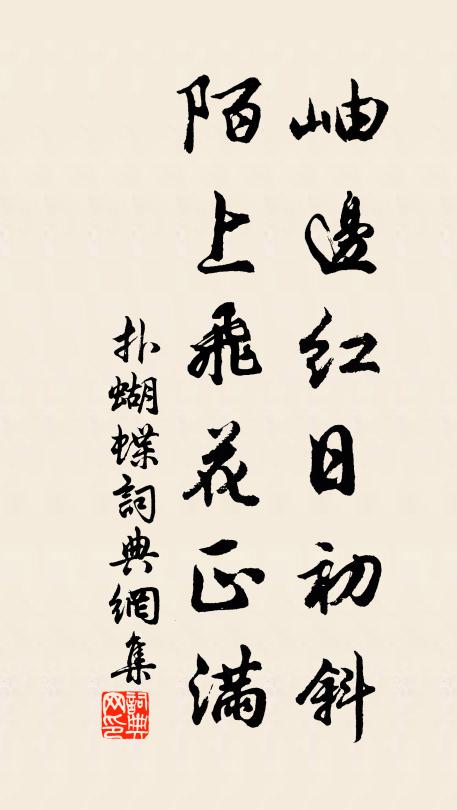 岫邊紅日初斜
陌上飛花正滿
扑蝴蝶詞典網集
詞典网印